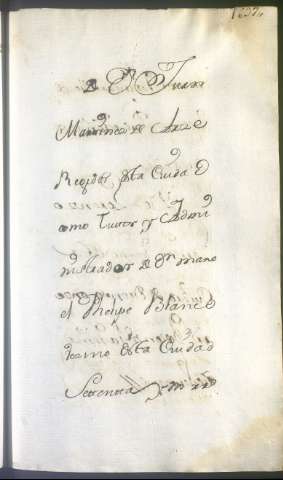 A Dn Juan
Martinez de Arze
Rexidor desta Ciudad
como tutor y Admi
nistrador de Dn mano
el Phelipe Blanco
vezino desta Ciudad
Setenta y